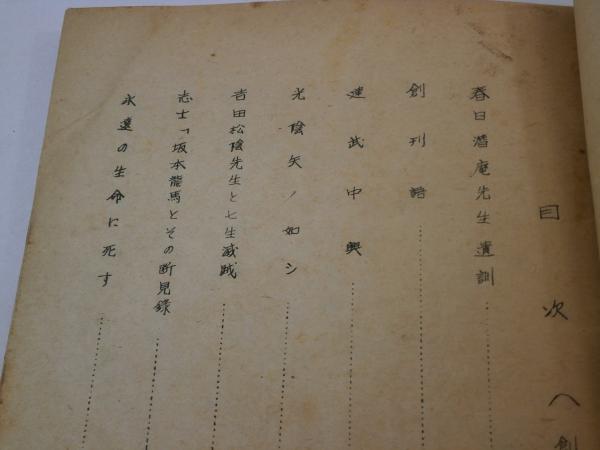 目次へ創
春日潜庵先生遺訓
創刊語
建武中興
光陰矢ノ如シ
吉田松陰先生と七生滅賊
志士「坂本龍馬とその断見録
永遠の生命に死す